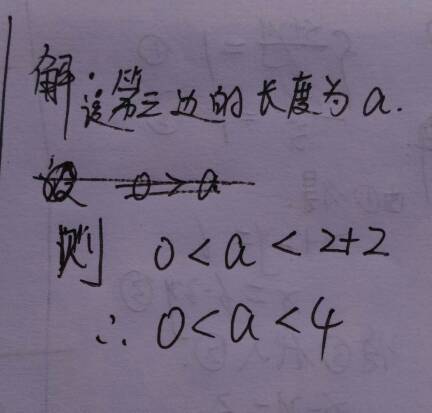 解:设第三边的长度为a.
则 0<a<2+2
∴ 0<a<4